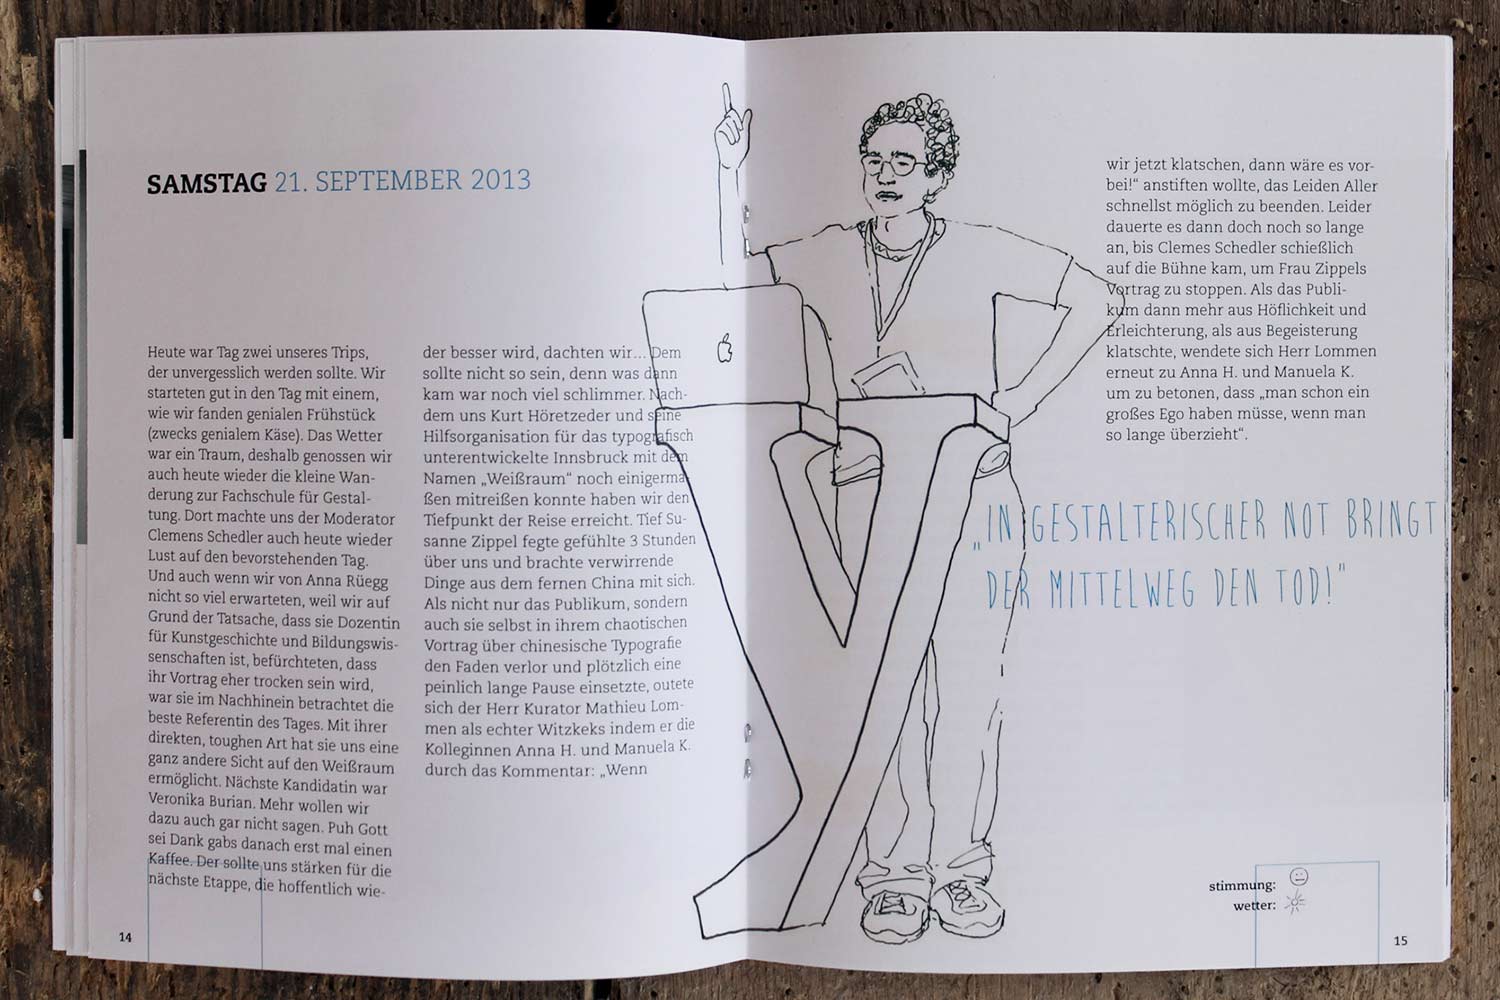 SAMSTAG 21. SEPTEMBER 2013
Heute war Tag zwei unseres Trips,
der unvergesslich werden sollte. Wir
starteten gut in den Tag mit einem,
wie wir fanden genialen Frühstück
(zwecks genialem Käse). Das Wetter
war ein Traum, deshalb genossen wir
auch heute wieder die kleine Wan-
derung zur Fachschule für Gestal-
tung. Dort machte uns der Moderator
Clemens Schedler auch heute wieder
Lust auf den bevorstehenden Tag.
Und auch wenn wir von Anna Rüegg
nicht so viel erwarteten, weil wir auf
Grund der Tatsache, dass sie Dozentin
für Kunstgeschichte und Bildungswis-
senschaften ist, befürchteten, dass
ihr Vortrag eher trocken sein wird,
war sie im Nachhinein betrachtet die
beste Referentin des Tages. Mit ihrer
direkten, toughen Art hat sie uns eine
ganz andere Sicht auf den Weißraum
ermöglicht. Nächste Kandidatin war
Veronika Burian. Mehr wollen wir
dazu auch gar nicht sagen. Puh Gott
sei Dank gabs danach erst mal einen
Kaffee. Der sollte uns stärken für die
nächste Etappe, die hoffentlich wie-
der besser wird, dachten wir... Dem
sollte nicht so sein, denn was dann
kam war noch viel schlimmer. Nach-
dem uns Kurt Höretzeder und seine
Hilfsorganisation für das typografisch
unterentwickelte Innsbruck mit dem
Namen „Weißraum“ noch einigerma
ßen mitreißen konnte haben wir den
Tiefpunkt der Reise erreicht. Tief Su-
sanne Zippel fegte gefühlte 3 Stunden
über uns und brachte verwirrende
Dinge aus dem fernen China mit sich.
Als nicht nur das Publikum, sondern
auch sie selbst in ihrem chaotischen
Vortrag über chinesische Typografie
den Faden verlor und plötzlich eine
peinlich lange Pause einsetzte, outete
sich der Herr Kurator Mathieu Lom-
men als echter Witzkeks indem er die
Kolleginnen Anna H. und Manuela K.
durch das Kommentar: „Wenn
14
wir jetzt klatschen, dann wäre es vor-
bei!“ anstiften wollte, das Leiden Aller
schnellst möglich zu beenden. Leider
dauerte es dann doch noch so lange
an, bis Clemes Schedler schießlich
auf die Bühne kam, um Frau Zippels
Vortrag zu stoppen. Als das Publi-
kum dann mehr aus Höflichkeit und
Erleichterung, als aus Begeisterung
klatschte, wendete sich Herr Lommen
erneut zu Anna H. und Manuela K.
um zu betonen, dass „man schon ein
großes Ego haben müsse, wenn man
so lange überzieht“.
„IN GESTALTERISCHER NOT BRINGT
DER MITTELWEG DEN TOD!“
stimmung:
wetter:
15